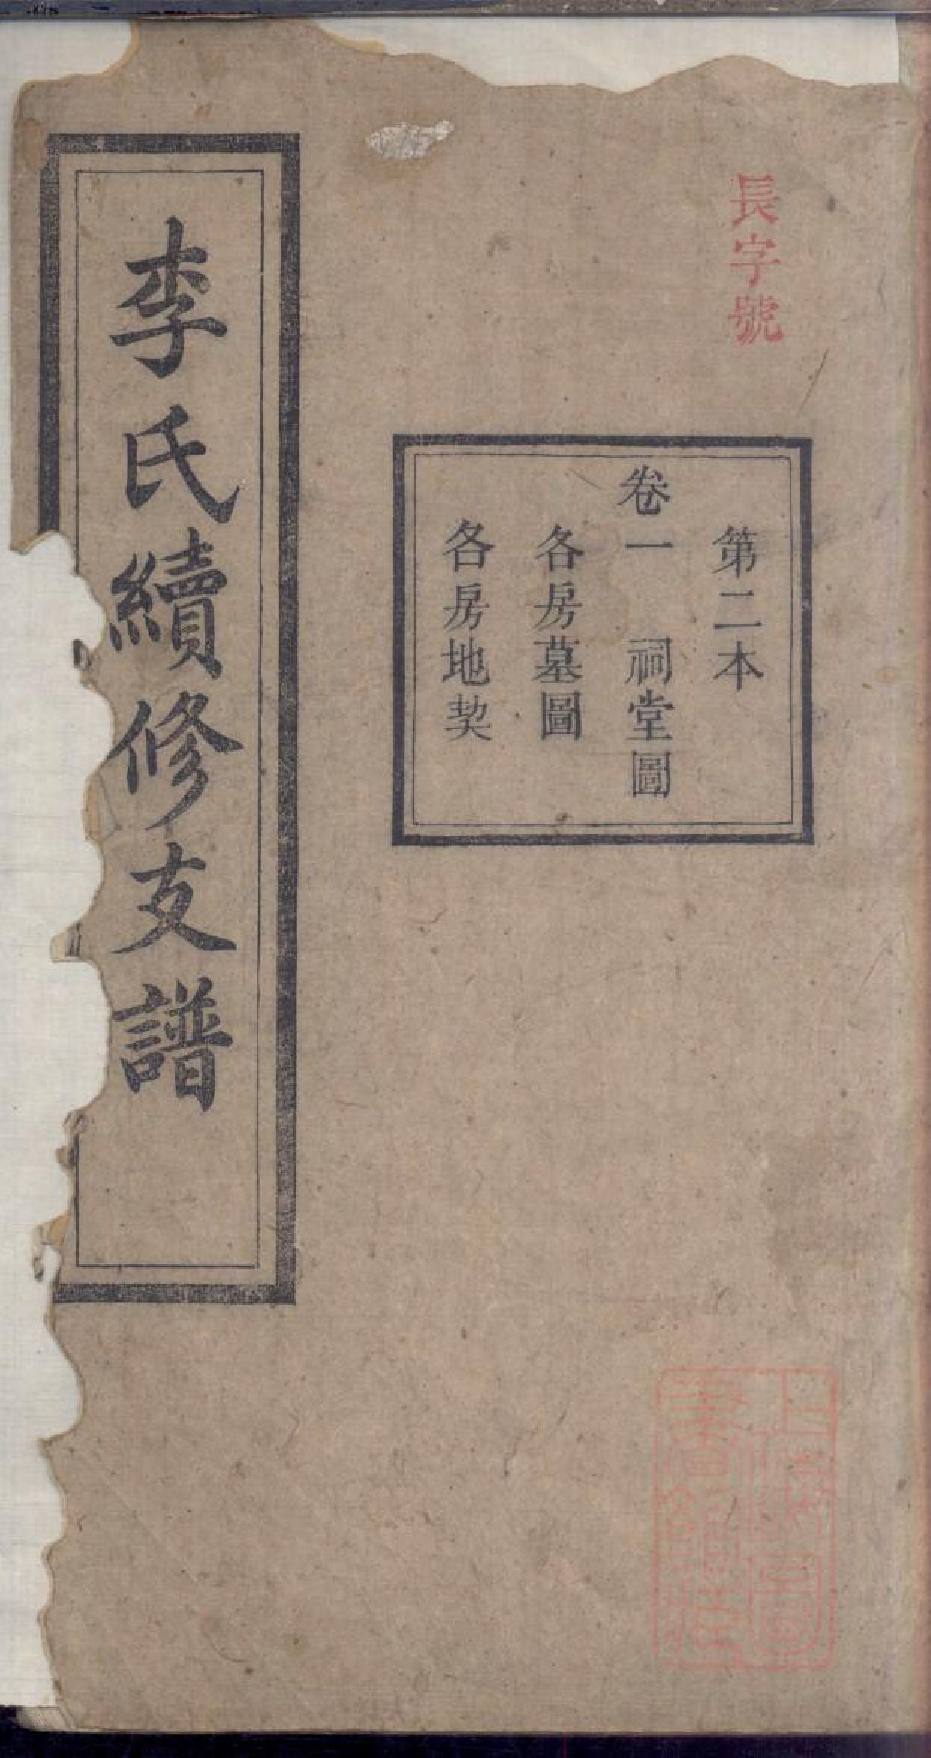 長字號
第二本
卷一 祠堂圖
各房墓圖
各房地契
李氏續修支譜
上海圖
書館藏